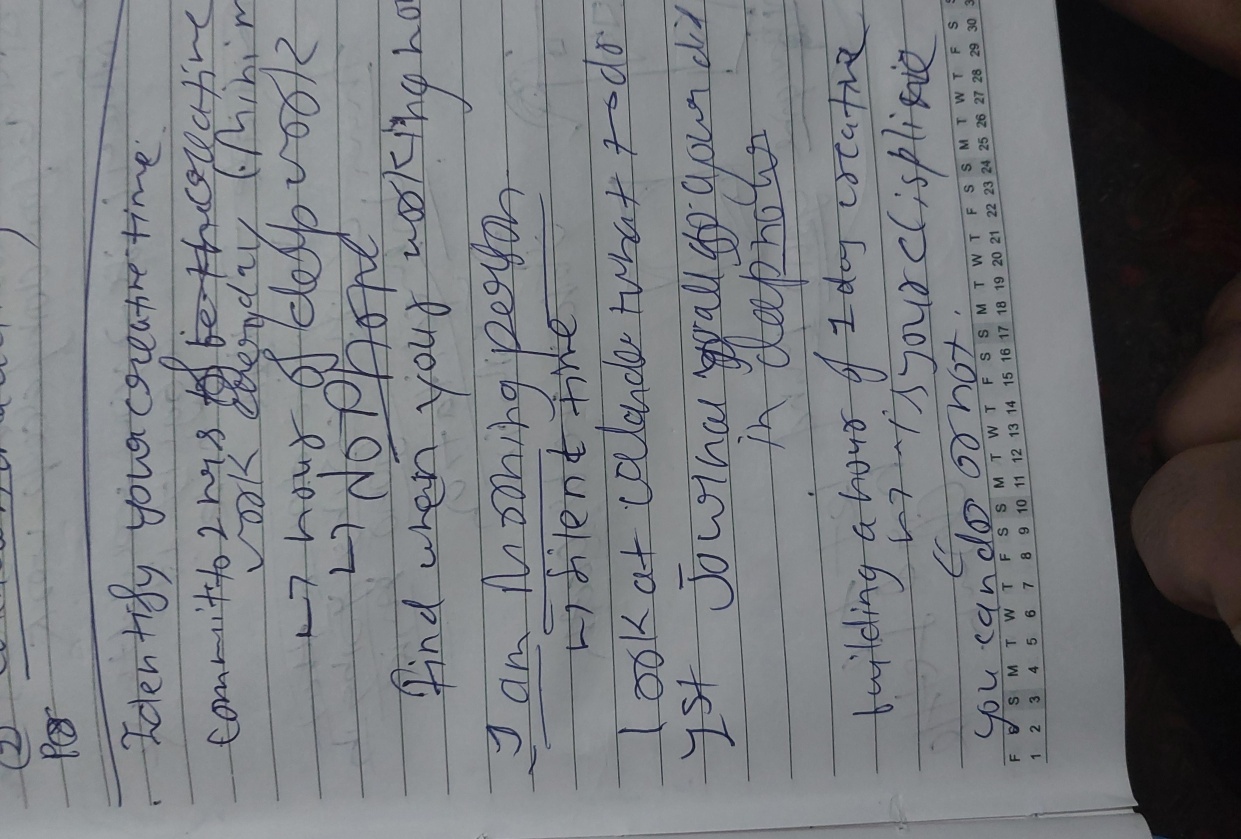 (2)
Identify your creative time.
Commit to 2 hrs of be the creative
work everyday (Minim
↳ hour of deep work
↳ No Phone
Find when your working ho
I am Morning person
↳ silent time
Look at calander what to do
1st Journal your did
in deep
building a hour of 1 day creative
↳ it's your discipline
you can do or not.
F S S M T W T F S S M T W T F S S M T W T F S S M T W T F S
1 2 3 4 5 6 7 8 9 10 11 12 13 14 15 16 17 18 19 20 21 22 23 24 25 26 27 28 29 30